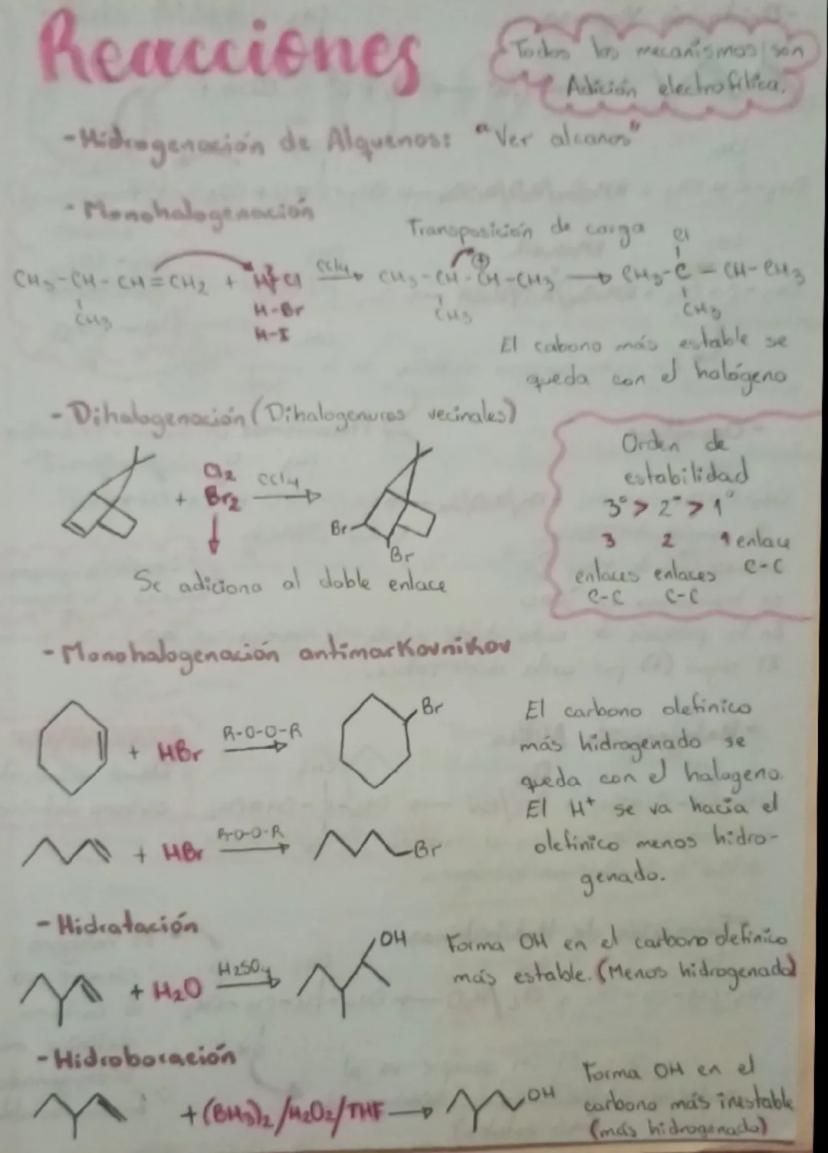 Reacciones
Todos los mecanismos son
Adición electrofílica.
-Hidrogenación de Alquenos: "Ver alcanos"
-Monohalogenación
Transposición de carga
CH3-CH-CH=CH2 + H-Cl CCl4 CH3-CH-CH-CH3 CH3-C-CH-CH3
CH3 H-Br CH3 Cl CH3
H-I
El cabono más estable se
queda con el halógeno
-Dihalogenación (Dihalogenuros vecinales)
+ Cl2 CCl4
Br2
Br
Br
Se adiciona al doble enlace
Orden de
estabilidad
3° > 2° > 1°
3 2 1 enlace
enlaces enlaces C-C
C-C C-C
-Monohalogenación antimarkovnikov
+ HBr R-O-O-R Br
+ HBr R-O-O-R Br
El carbono olefinico
más hidrogenado se
queda con el halogeno.
El H+ se va hacia el
olefinico menos hidro-
genado.
-Hidratación
+ H2O H2SO4 OH
Forma OH en el carbono olefinico
más estable. (Menos hidrogenado)
-Hidroboración
+ (BH3)2/H2O2/THF OH
Forma OH en el
carbono más inestable
(más hidrogenado)